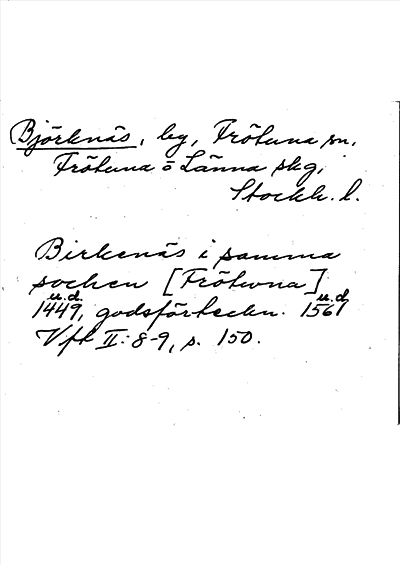 Björknäs, by, Frötuna sn,
Frötuna o Länna skg,
Stockh. l.
Birkenäs i samma
socken [Frötwna]
u.d. u.d.
1449, godsförteckn. 1561
Vft II: 8-9, s. 150.